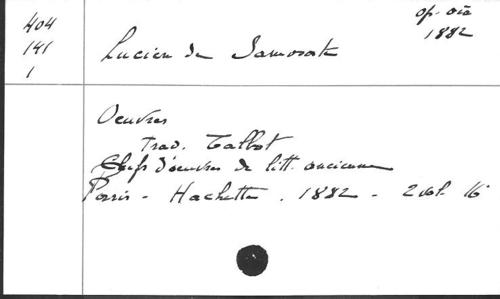 404
141
1
op. oïa
1882
Lucien de Samosate
Oeuvres
trad. Talbot
Chefs d'oeuvres de litt. ancienne
Paris - Hachette. 1882 - 2 vol. 16°